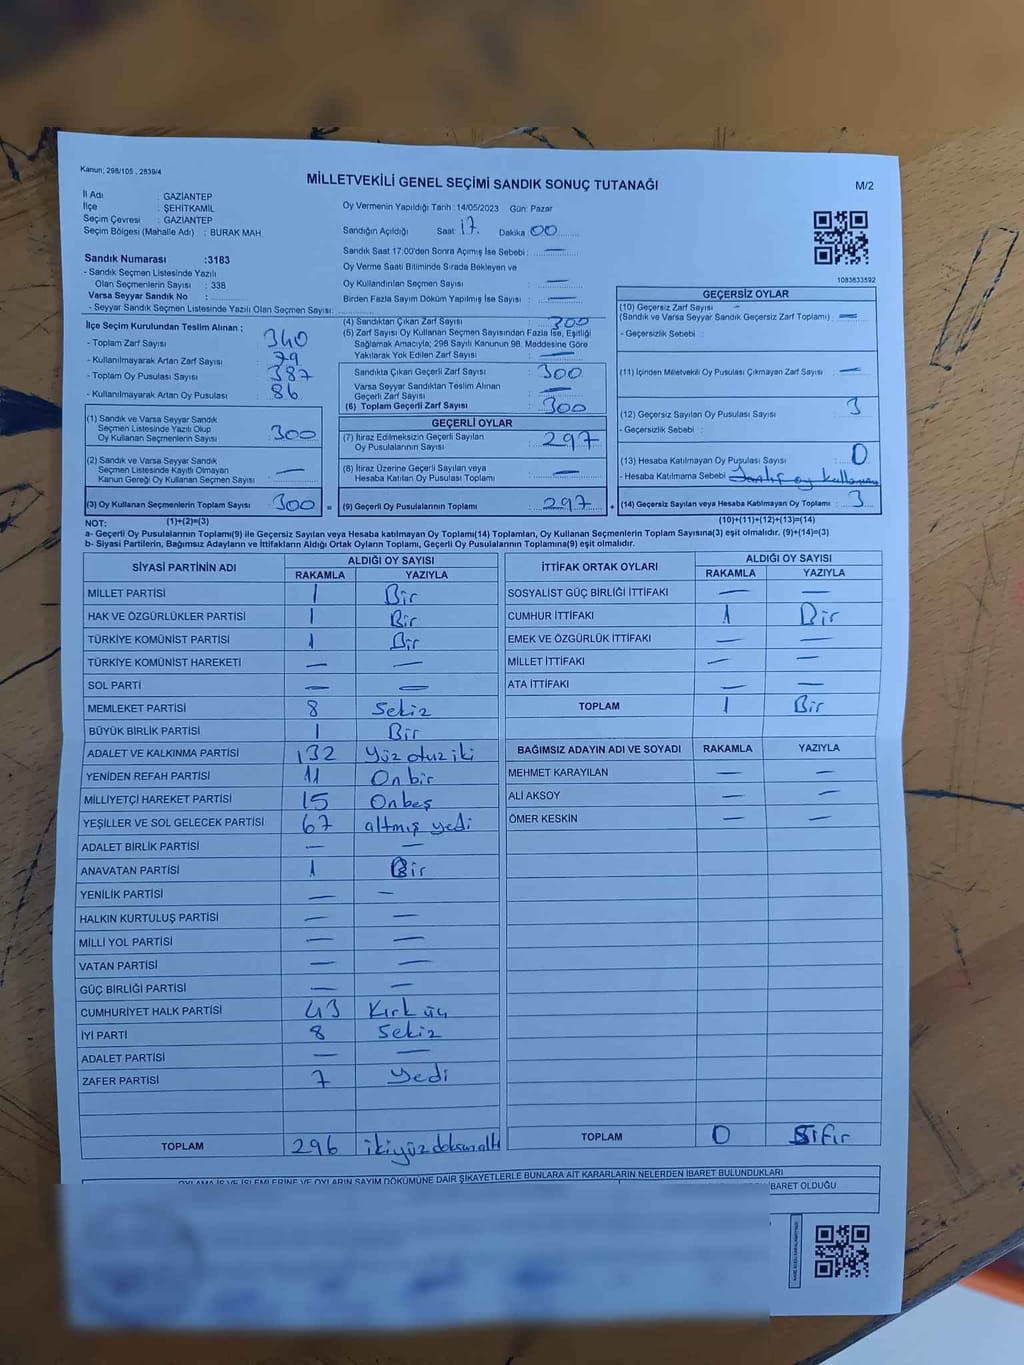 Kanun; 298/105 , 2839/4
MİLLETVEKİLİ GENEL SEÇİMİ SANDIK SONUÇ TUTANAĞI
M/2
İl Adı : GAZİANTEP
İlçe : ŞEHİTKAMİL
Seçim Çevresi : GAZİANTEP
Seçim Bölgesi (Mahalle Adı) : BURAK MAH.
Oy Vermenin Yapıldığı Tarih : 14/05/2023 Gün: Pazar
Sandığın Açıldığı Saat: 17. Dakika: 00
Sandık Saat 17:00'den Sonra Açılmış İse Sebebi : —
Oy Verme Saati Bitiminde Sırada Bekleyen ve
Oy Kullandırılan Seçmen Sayısı : —
Birden Fazla Sayım Döküm Yapılmış İse Sayısı : —
1083633592
Sandık Numarası :3183
- Sandık Seçmen Listesinde Yazılı
Olan Seçmenlerin Sayısı : 338
Varsa Seyyar Sandık No :
- Seyyar Sandık Seçmen Listesinde Yazılı Olan Seçmen Sayısı:
İlçe Seçim Kurulundan Teslim Alınan ;
- Toplam Zarf Sayısı : 340
- Kullanılmayarak Artan Zarf Sayısı : 79
- Toplam Oy Pusulası Sayısı : 387
- Kullanılmayarak Artan Oy Pusulası : 86
(1) Sandık ve Varsa Seyyar Sandık
Seçmen Listesinde Yazılı Olup
Oy Kullanan Seçmenlerin Sayısı : 300
(2) Sandık ve Varsa Seyyar Sandık
Seçmen Listesinde Kayıtlı Olmayan
Kanun Gereği Oy Kullanan Seçmen Sayısı : —
(3) Oy Kullanan Seçmenlerin Toplam Sayısı : 300 =
(4) Sandıktan Çıkan Zarf Sayısı : 300
(5) Zarf Sayısı Oy Kullanan Seçmen Sayısından Fazla İse, Eşitliği
Sağlamak Amacıyla; 298 Sayılı Kanunun 98. Maddesine Göre
Yakılarak Yok Edilen Zarf Sayısı : —
Sandıkta Çıkan Geçerli Zarf Sayısı : 300
Varsa Seyyar Sandıktan Teslim Alınan
Geçerli Zarf Sayısı : —
(6) Toplam Geçerli Zarf Sayısı : 300
GEÇERLİ OYLAR
(7) İtiraz Edilmeksizin Geçerli Sayılan
Oy Pusulalarının Sayısı : 297
(8) İtiraz Üzerine Geçerli Sayılan veya
Hesaba Katılan Oy Pusulası Toplamı : —
(9) Geçerli Oy Pusulalarının Toplamı : 297 +
GEÇERSİZ OYLAR
(10) Geçersiz Zarf Sayısı
(Sandık ve Varsa Seyyar Sandık Geçersiz Zarf Toplamı) : —
- Geçersizlik Sebebi :
(11) İçinden Milletvekili Oy Pusulası Çıkmayan Zarf Sayısı : —
(12) Geçersiz Sayılan Oy Pusulası Sayısı : 3
- Geçersizlik Sebebi :
(13) Hesaba Katılmayan Oy Pusulası Sayısı : 0
- Hesaba Katılmama Sebebi : Yanlış oy kullanımı
(14) Geçersiz Sayılan veya Hesaba Katılmayan Oy Toplamı : 3
NOT: (1)+(2)=(3) (10)+(11)+(12)+(13)=(14)
a- Geçerli Oy Pusulalarının Toplamı(9) ile Geçersiz Sayılan veya Hesaba katılmayan Oy Toplamı(14) Toplamları, Oy Kullanan Seçmenlerin Toplam Sayısına(3) eşit olmalıdır. (9)+(14)=(3)
b- Siyasi Partilerin, Bağımsız Adayların ve İttifakların Aldığı Ortak Oyların Toplamı, Geçerli Oy Pusulalarının Toplamına(9) eşit olmalıdır.
SİYASİ PARTİNİN ADI ALDIĞI OY SAYISI
RAKAMLA YAZIYLA
MİLLET PARTİSİ 1 Bir
HAK VE ÖZGÜRLÜKLER PARTİSİ 1 Bir
TÜRKİYE KOMÜNİST PARTİSİ 1 Bir
TÜRKİYE KOMÜNİST HAREKETİ — —
SOL PARTİ — —
MEMLEKET PARTİSİ 8 Sekiz
BÜYÜK BİRLİK PARTİSİ 1 Bir
ADALET VE KALKINMA PARTİSİ 132 Yüz otuz iki
YENİDEN REFAH PARTİSİ 11 On bir
MİLLİYETÇİ HAREKET PARTİSİ 15 On beş
YEŞİLLER VE SOL GELECEK PARTİSİ 67 altmış yedi
ADALET BİRLİK PARTİSİ — —
ANAVATAN PARTİSİ 1 Bir
YENİLİK PARTİSİ — —
HALKIN KURTULUŞ PARTİSİ — —
MİLLİ YOL PARTİSİ — —
VATAN PARTİSİ — —
GÜÇ BİRLİĞİ PARTİSİ — —
CUMHURİYET HALK PARTİSİ 43 Kırk üç
İYİ PARTİ 8 Sekiz
ADALET PARTİSİ — —
ZAFER PARTİSİ 7 Yedi
TOPLAM 296 ikiyüz doksan altı
İTTİFAK ORTAK OYLARI ALDIĞI OY SAYISI
RAKAMLA YAZIYLA
SOSYALİST GÜÇ BİRLİĞİ İTTİFAKI — —
CUMHUR İTTİFAKI 1 Bir
EMEK VE ÖZGÜRLÜK İTTİFAKI — —
MİLLET İTTİFAKI — —
ATA İTTİFAKI — —
TOPLAM 1 Bir
BAĞIMSIZ ADAYIN ADI VE SOYADI RAKAMLA YAZIYLA
MEHMET KARAYILAN — —
ALİ AKSOY — —
ÖMER KESKİN — —
TOPLAM 0 Sıfır
OYLAMA İŞ VE İŞLEMLERİNE VE OYLARIN SAYIM DÖKÜMÜNE DAİR ŞİKAYETLERLE BUNLARA AİT KARARLARIN NELERDEN İBARET BULUNDUKLARI
İBARET OLDUĞU